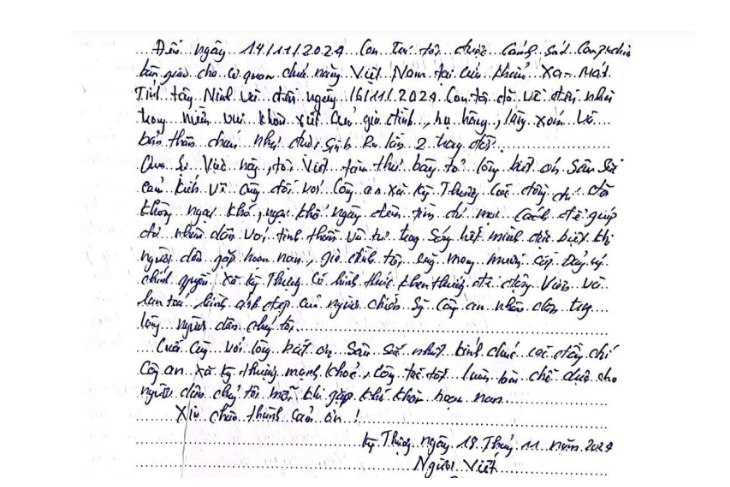 Đến ngày 14/11/2024 Con tui tôi được Cảnh sát Campuchia
bàn giao cho cơ quan chức năng Việt Nam tại Cửa khẩu Xa-Mát
Tỉnh tây Ninh và đến ngày 16/11/2024 Con tôi đã về đến nhà
trong niềm vui khôn xiết của gia đình, họ hàng, làng xóm và
bản thân cháu như được sinh ra lần 2 trong đời.
Qua sự việc này, tôi viết tâm thư bày tỏ lòng biết ơn sâu sắc
cảm kích vô cùng đối với Công an xã Kỳ Thượng các đồng chí đã
không ngại khó, ngại khổ ngày đêm tìm đủ mọi cách để giúp
đỡ nhân dân với tinh thần và tư trong sáng hết mình đặc biệt khi
người dân gặp hoạn nạn, gia đình tôi mong muốn cấp Đảng uỷ
chính quyền xã Kỳ Thượng có hình thức khen thưởng để động viên và
lan toả hình ảnh đẹp của người chiến sỹ Công an nhân dân trong
lòng người dân chúng tôi.
Cuối cùng với lòng biết ơn sâu sắc nhất kính chúc các đồng chí
Công an xã Kỳ thượng mạnh khoẻ, công tác tốt luôn là chỗ dựa cho
người dân chúng tôi mỗi khi gặp khó khăn hoạn nạn.
Xin chân thành cảm ơn!
Kỳ Thượng ngày 18 Tháng 11 năm 2024
Người Viết